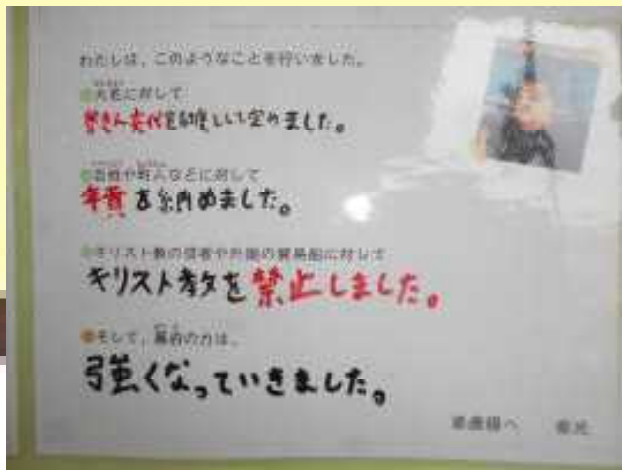 わたしは、このようなことを行いました。
大名に対して
参きん交代を制度として定めました。
百姓や町人などに対して
年貢を納めました。
キリスト教の信者や外国の貿易船に対して
キリスト教を禁止しました。
そして、幕府の力は、
強くなっていきました。
家康様へ 家光